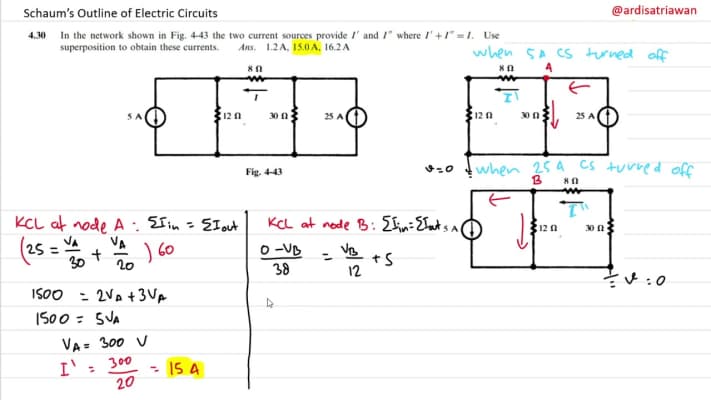 Schaum's Outline of Electric Circuits
@ardisatriawan
4.30 In the network shown in Fig. 4-43 the two current sources provide I' and I'' where I' + I'' = I. Use
superposition to obtain these currents. Ans. 1.2 A, 15.0 A, 16.2 A
when 5A CS turned off
8 Ω
I
5 A
12 Ω
30 Ω
25 A
Fig. 4-43
8 Ω
A
I'
12 Ω
30 Ω
25 A
v=0
when 25 A CS turned off
B
8 Ω
I''
5 A
12 Ω
30 Ω
v=0
KCL at node A : ΣIin = ΣIout
(25 = VA/30 + VA/20) 60
1500 = 2VA + 3VA
1500 = 5VA
VA = 300 V
I' = 300/20 = 15 A
KCL at node B : ΣIin = ΣIout
0 - VB/38 = VB/12 + 5